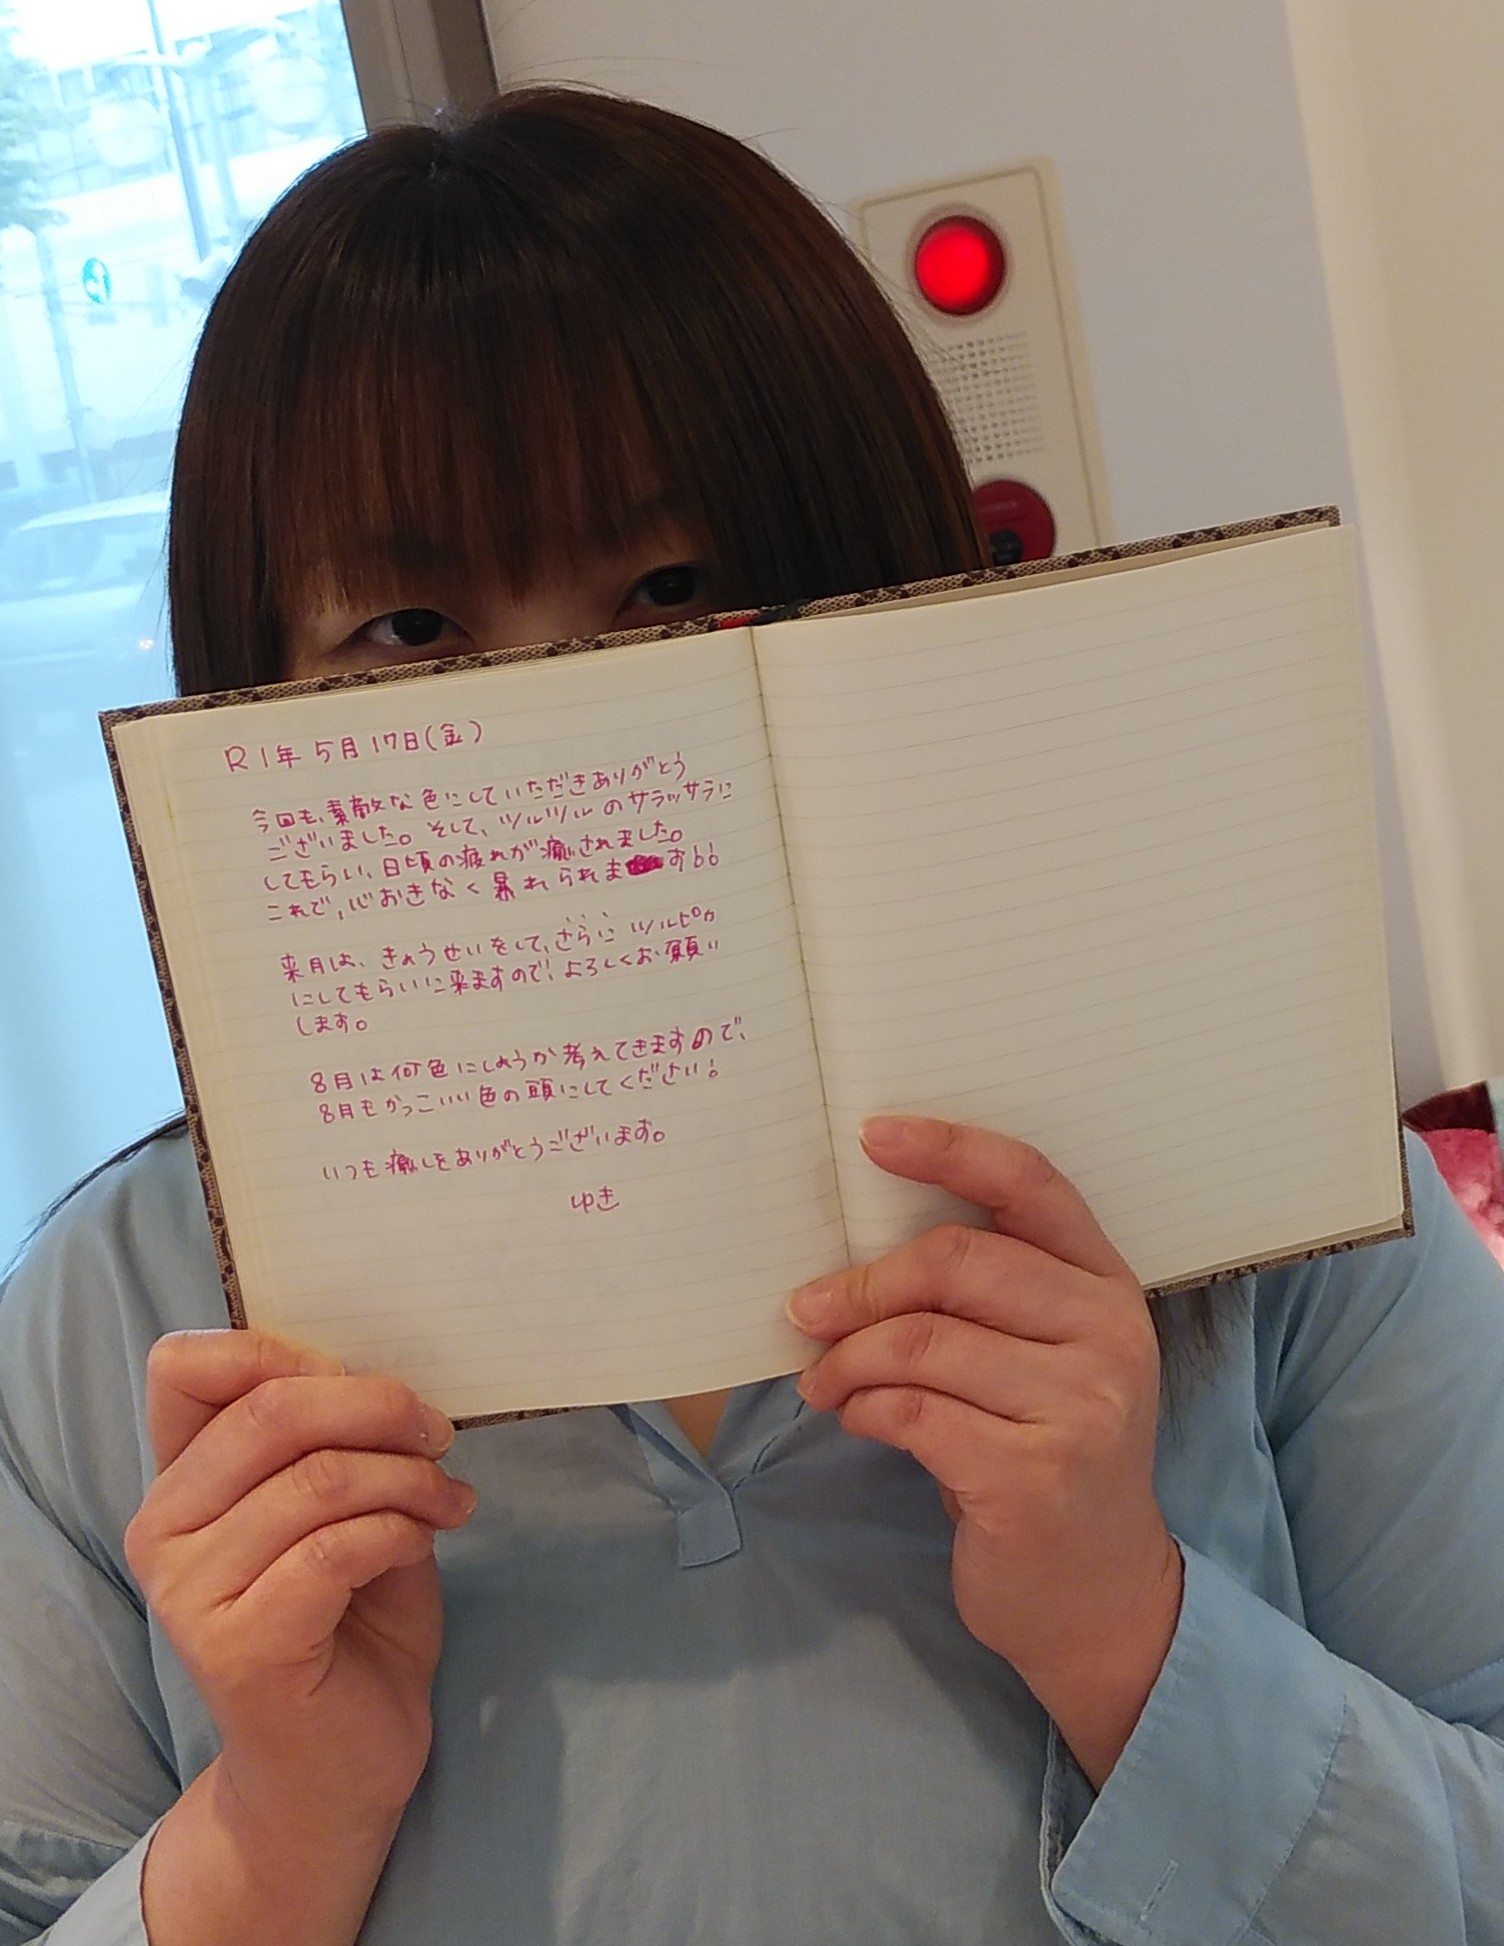 R1年 5月17日(金)
今回も、素敵な色にしていただきありがとう
ございました。そして、ツルツルのサラッサラに
してもらい、日頃の疲れが癒されました。
これで、心おきなく暴れられます!!
来月は、きょうせいをして、さらにツルピカ
にしてもらいに来ますので、よろしくお願い
します。
8月は何色にしようか考えてきますので、
8月もかっこいい色の頭にしてください!
いつも癒しをありがとうございます。
ゆき